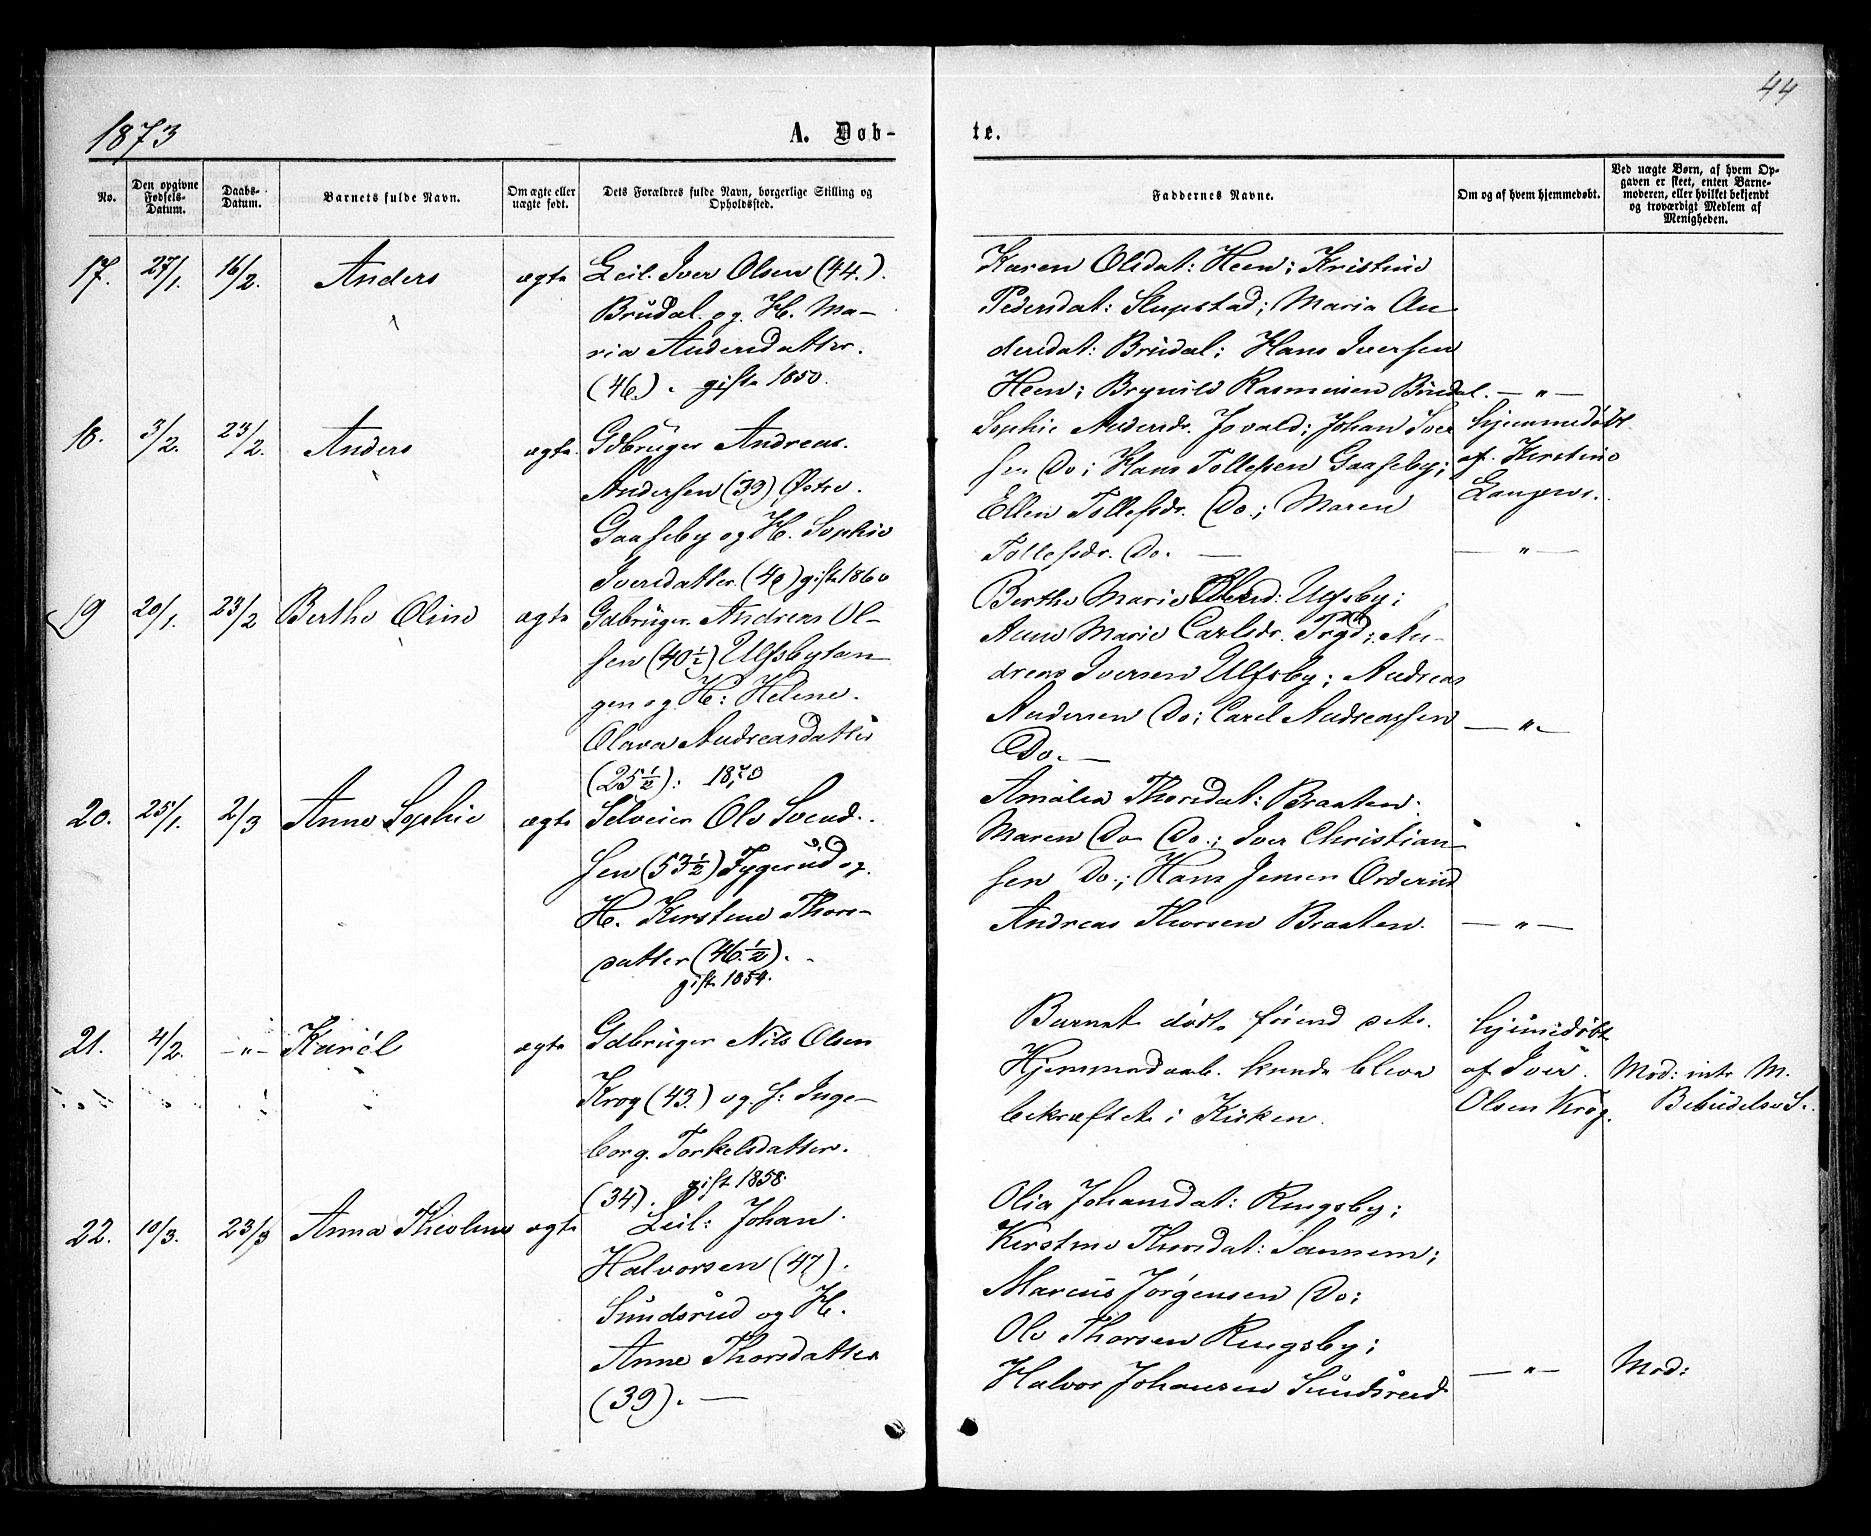 44
1873
A. Døb-
te.
No.
Den opgivne
Fødsels-
Datum.
Daabs-
Datum.
Barnets fulde Navn.
Om ægte eller
uægte født.
Dets Forældres fulde Navn, borgerlige Stilling og
Opholdssted.
Faddernes Navne.
Om og af hvem hjemmedøbt.
Ved uægte Børn, af hvem Op-
gaven er skeet, enten Barne-
moderen, eller hvilket bekjendt
og troværdigt Medlem af
Menigheden.
17. 27/1. 16/2. Anders ægte Leil. Iver Olsen (44.).
Brudal. og H. Ma-
ria Andersdatter.
(46.). gifte 1850.
Karen Olsdat: Heen; Kristine
Pedersdat: Slupstad; Maria An
dersdat: Brudal; Hans Iversen
Heen; Brynild Rasmussen Brudal. — " —
18. 3/2. 23/2. Anders ægte. Gdbruger Andreas.
Andersen (39) Østre.
Gaaseby og H. Sophie
Iversdatter (40) gifte 1860
Sophie Andersdr. Jsvald; Johan Iver
sen Do; Hans Tollefsen Gaaseby;
Ellen Tollefsdr. Do; Maren
Tollefsdr. Do. —
hjemmedøbt
af. Kirstine
— " —
19 20/1. 23/2 Berthe Oline ægte Gdbruger. Andreas Ol-
sen (40 1/2) Ulfsbytan-
gen og H: Helene.
Olava Andreasdatter
(25 1/2): 1870
Berthe Marie Ulfsby;
Anne Marie Carlsdr. An-
dreas Iversen Ulfsby; Andreas
Andersen Do; Carel Andreassen
Do. —
— " —
20. 25/1. 2/3 Anne Sophie ægte Selveier Ole Svend-
sen (53 1/2) Tygerud og
H. Kirstine Thors-
datter (46 1/2).
gift 1854.
Amalia Thorsdat: Braaten.
Maren Do Do.; Iver Christian-
sen Do.; Hans Jensen Orderud
Andreas Thorsen Braaten. — " —
21. 4/2. — " — Karél ægte Gdbruger Nils Olsen
Krog (43.) og h: Inge-
borg. Torkelsdatter.
(34). gift 1858.
Barnet døde førend dets.
Hjemmedaab. kunde blive
bekræftet i Kirken.
hjemmedøbt
af Iver.
Olsen Krog.
Mod: inte M.
22. 10/3. 23/3 Anna Theoline ægte Leil: Johan.
Halvorsen (47).
Sundsrud og H.
Anne Thorsdatter
(39). —
Olia Johansdat: Ringsby;
Kirstine Thorsdat: Sannem;
Marcus Jørgensen Do;
Ole Thorsen Ringsby;
Halvor Johansen Sundsrud
— " —
Mod: